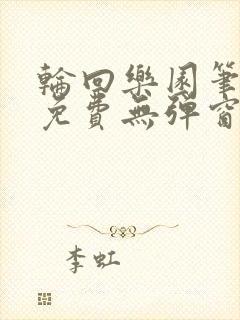 輪回樂園筆
免費無彈窗
李虹